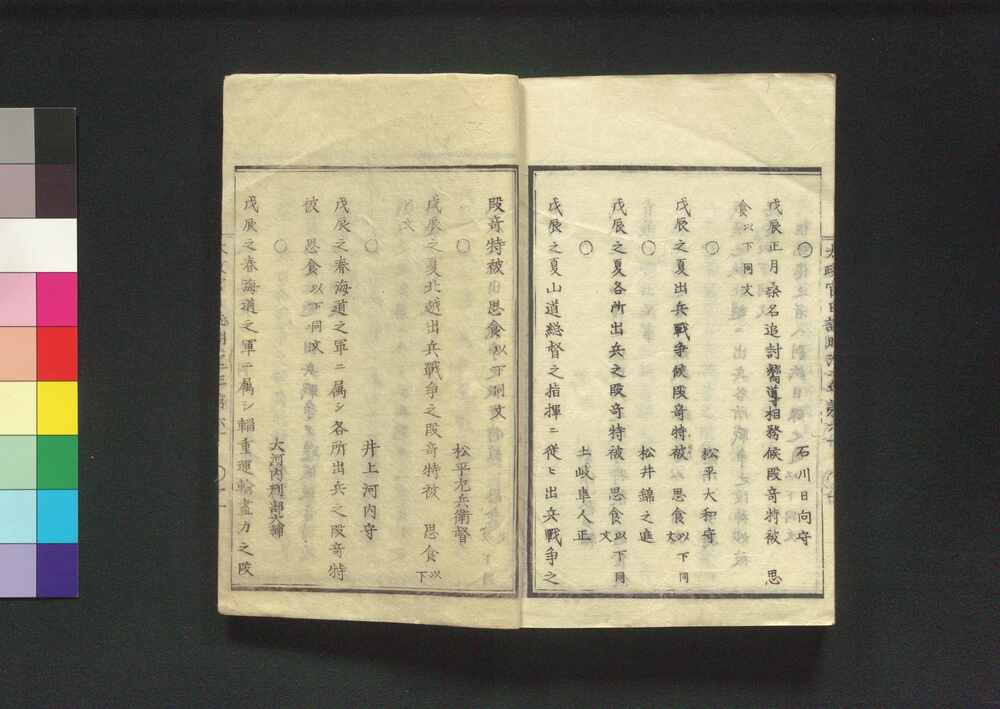 ○
石川日向守
戊辰正月桑名追討嚮導相務候段奇特被 思
食以下同文
○
松平大和守
戊辰之夏出兵戰爭候段奇特被 思食以下同文
○
松井錦之進
戊辰之夏各所出兵之段奇特被 思食以下同文
○
土岐隼人正
戊辰之夏山道總督之指揮ニ從ヒ出兵戰爭之
段奇特被 思食以下同文
○
松平左兵衛督
戊辰之夏北越出兵戰爭之段奇特被 思食以下
同文
○
井上河内守
戊辰之春海道之軍ニ属シ各所出兵之段奇特
被 思食以下同文
○
大河内刑部大輔
戊辰之春海道之軍ニ属シ輜重運輸盡力之段